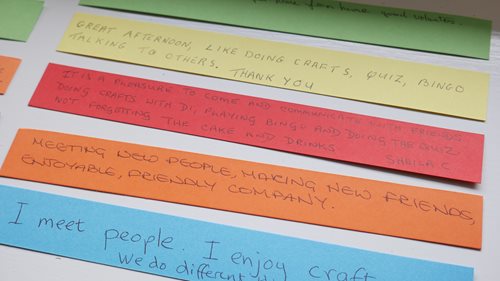 have good
GREAT AFTERNOON, LIKE DOING CRAFTS, QUIZ, BINGO
TALKING TO OTHERS. THANK YOU
IT IS A PLEASURE TO COME AND COMMUNICATE WITH FRIENDS
DOING CRAFTS WITH DI, PLAYING BINGO AND DOING THE QUIZ
NOT FORGETTING THE CAKE AND DRINKS SHEILA C
MEETING NEW PEOPLE, MAKING NEW FRIENDS,
ENJOYABLE, FRIENDLY COMPANY.
I meet people. I enjoy craft
We do different